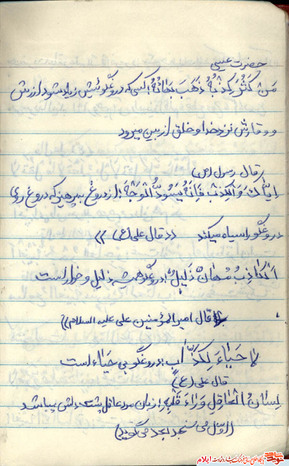 حضرت عیسی
مَن کَثُرَ کِذبُهُ ذَهَبَ بَهَائُهُ آکسی که دروغگوئیش زیاد شود ارزش
و وقارش نزد خدا و خلق از بین میرود
قال رسول (ص)
ایّاکَ وَ الکِذبَ فَاِنَّهُ یُسَوِّدُ الوَجهَ از دروغ بپرهیز که دروغ روی
دروغگو را سیاه میکند «قال علی (ع)»
اَلکاذِبُ مُهانٌ ذَلیلٌ دروغگو همیشه ذلیل و خوار است
قال امیرالمؤمنین علی علیه السلام»
لا حَیاءَ لِکَذّاب دروغگو بی حیاء است
قال علی (ع)
لِسانُ العاقِلِ وَراءَ قَلبِهِ زبان مرد عاقل پشت دلش میباشد
اول می سنجد بعد می گوید)